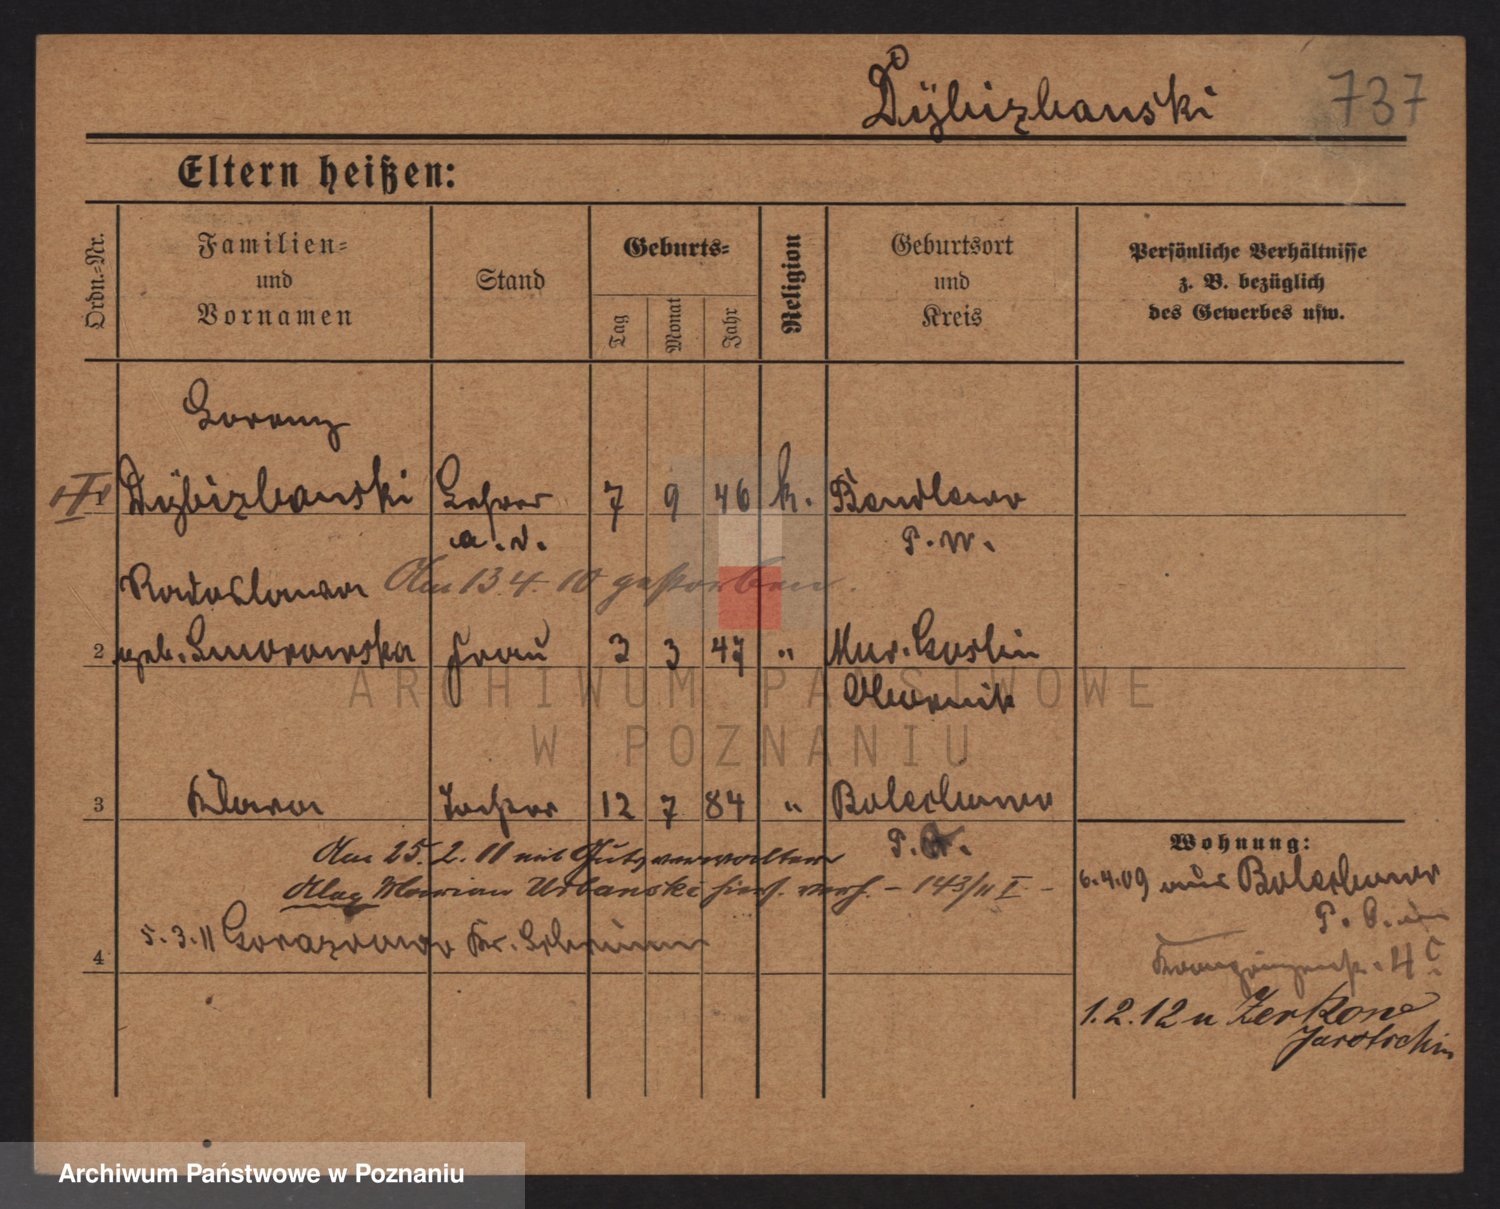 Dÿbizbanski
737
Eltern heißen:
Ordn.-Nr.
Familien-
und
Vornamen
Stand
Geburts-
Tag
Monat
Jahr
Religion
Geburtsort
und
Kreis
Persönliche Verhältnisse
z. B. bezüglich
des Gewerbes usw.
Lorenz
1 Dÿbizbanski Lehrer 7 9 46 k. Bendlewo
a. D. P. W.
Radoslawa Am 13 4. 10 gestorben.
2 geb. Smorowska Frau 3 3 47 " Mur. Goslin
Obornik
3 Klara Tochter 12 7 84 " Bolechowo
P.
Am 25. 2. 11 mit Gutsverwalter
Marian Urbanski hier. verh. - 143/11 I. -
5.3.11 Gorazdowo Kr. Schrimm
4
Wohnung:
6.4.09 aus Bolechowo
P. O.
4
1.2.12 n Zerkow
Jarotschin
ARCHIWUM PAŃSTWOWE
W POZNANIU
Archiwum Państwowe w Poznaniu